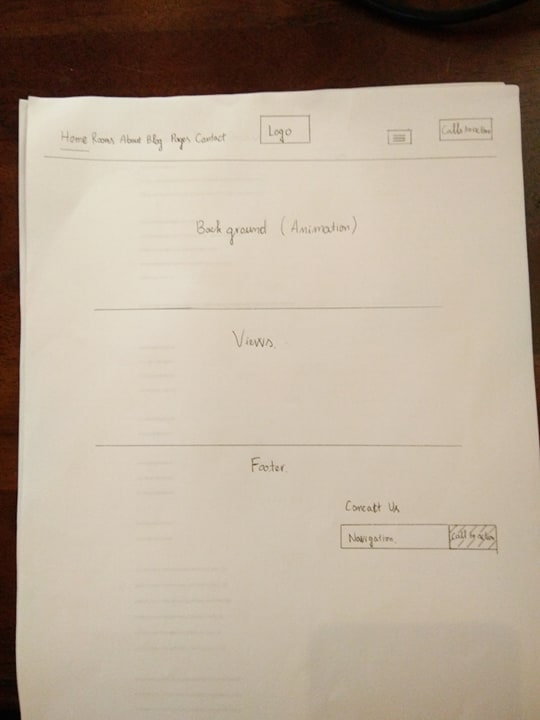 Home Rooms About Blog Pages Contact
Logo
Call to action
Background (Animation)
Views.
Footer.
Concatt Us
Navigation
Call to action